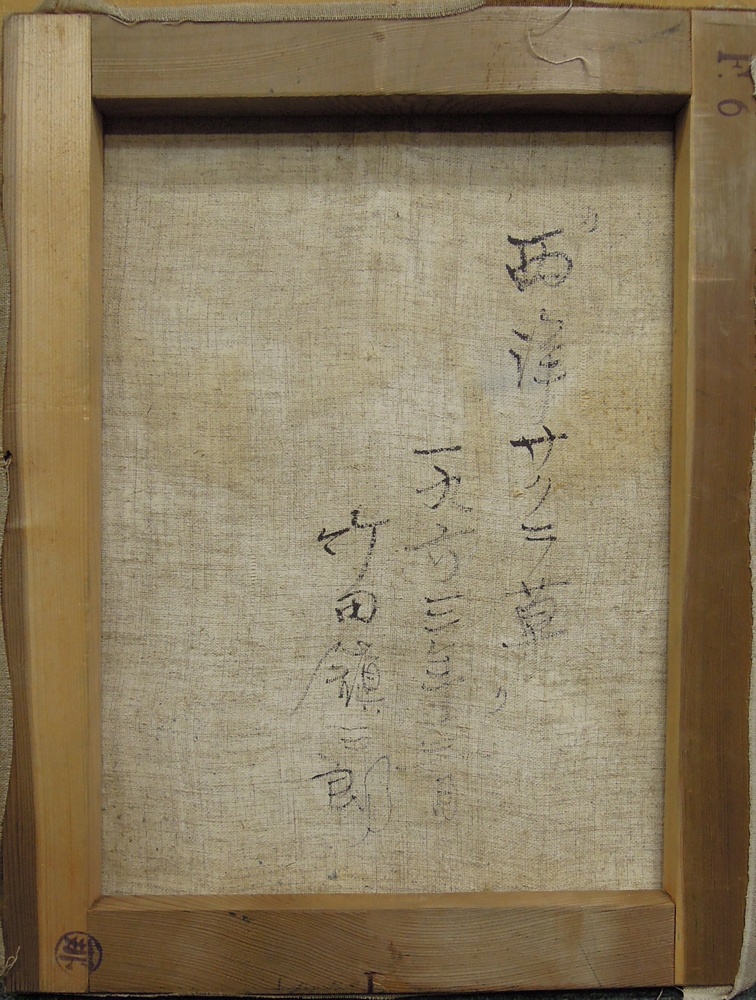 「西洋サクラ草」
一九六三年二月
竹田鎮三郎
F.6